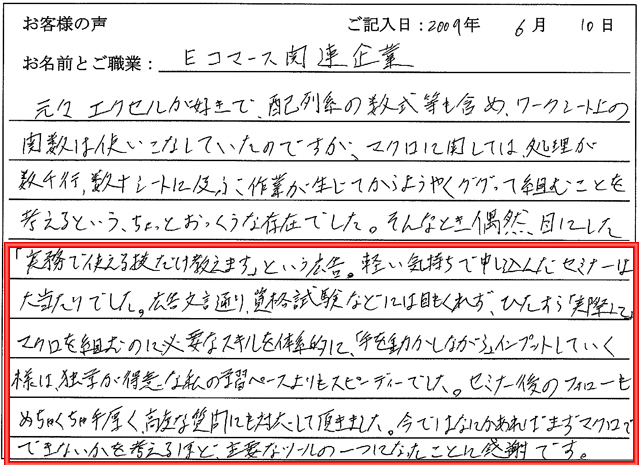 お客様の声 ご記入日：2009年 6月 10日
お名前とご職業： Eコマース関連企業
元々エクセルが好きで、配列系の数式等も含め、ワークシート上の
関数は使いこなしていたのですが、マクロに関しては、処理が
数千行、数十シートに及ぶ作業が生じてからようやくググって組むことを
考えるという、ちょっとおっくうな存在でした。そんなとき偶然、目にした
「実務で使える技だけ教えます」という広告。軽い気持ちで申し込んだセミナーは
大当たりでした。広告文言通り、資格試験などには目もくれず、ひたすら「実際して」
マクロを組むのに必要なスキルを体系的に、「手を動かしながら」インプットしていく
様は、独学が得意な私の学習ペースよりもスピーディーでした。セミナー後のフォローも
めちゃくちゃ手厚く、高度な質問にも対応して頂きました。今ではなにかあればまずマクロで
できないかを考えるほど、主要なツールの一つになったことに感謝です。